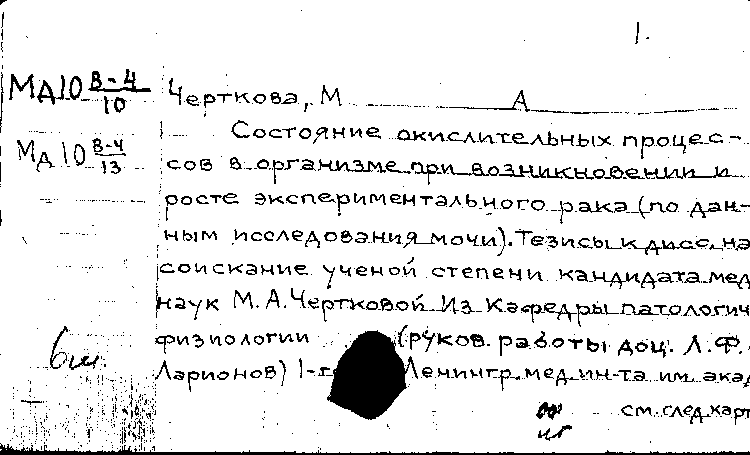 1.
МД10 В-4/10
Черткова, М А
Состояние окислительных процес-
МД10 В-4/13
сов в организме при возникновении и
росте экспериментального рака (по дан-
ным исследования мочи). Тезисы к дисс. на
соискание ученой степени кандидата мед
наук М.А. Чертковой Из Кафедры патологич
физиологии (руков. работы доц. Л.Ф.
Ларионов) 1-г Ленингр. мед. ин-та им. акад
см. след карт